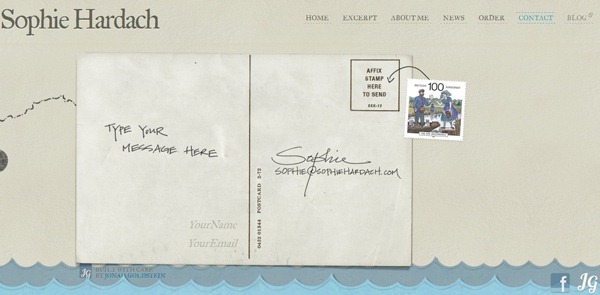 Sophie Hardach
HOME EXCERPT ABOUT ME NEWS ORDER CONTACT BLOG
AFFIX
STAMP
HERE
TO SEND
100
TYPE YOUR
MESSAGE HERE
Sophie
SOPHIE@SOPHIEHARDACH.COM
0432 01344 POSTCARD 2-72
YourName
YourEmail
JG BUILT WITH CARE
BY JONAH GOLDSTEIN
f JG